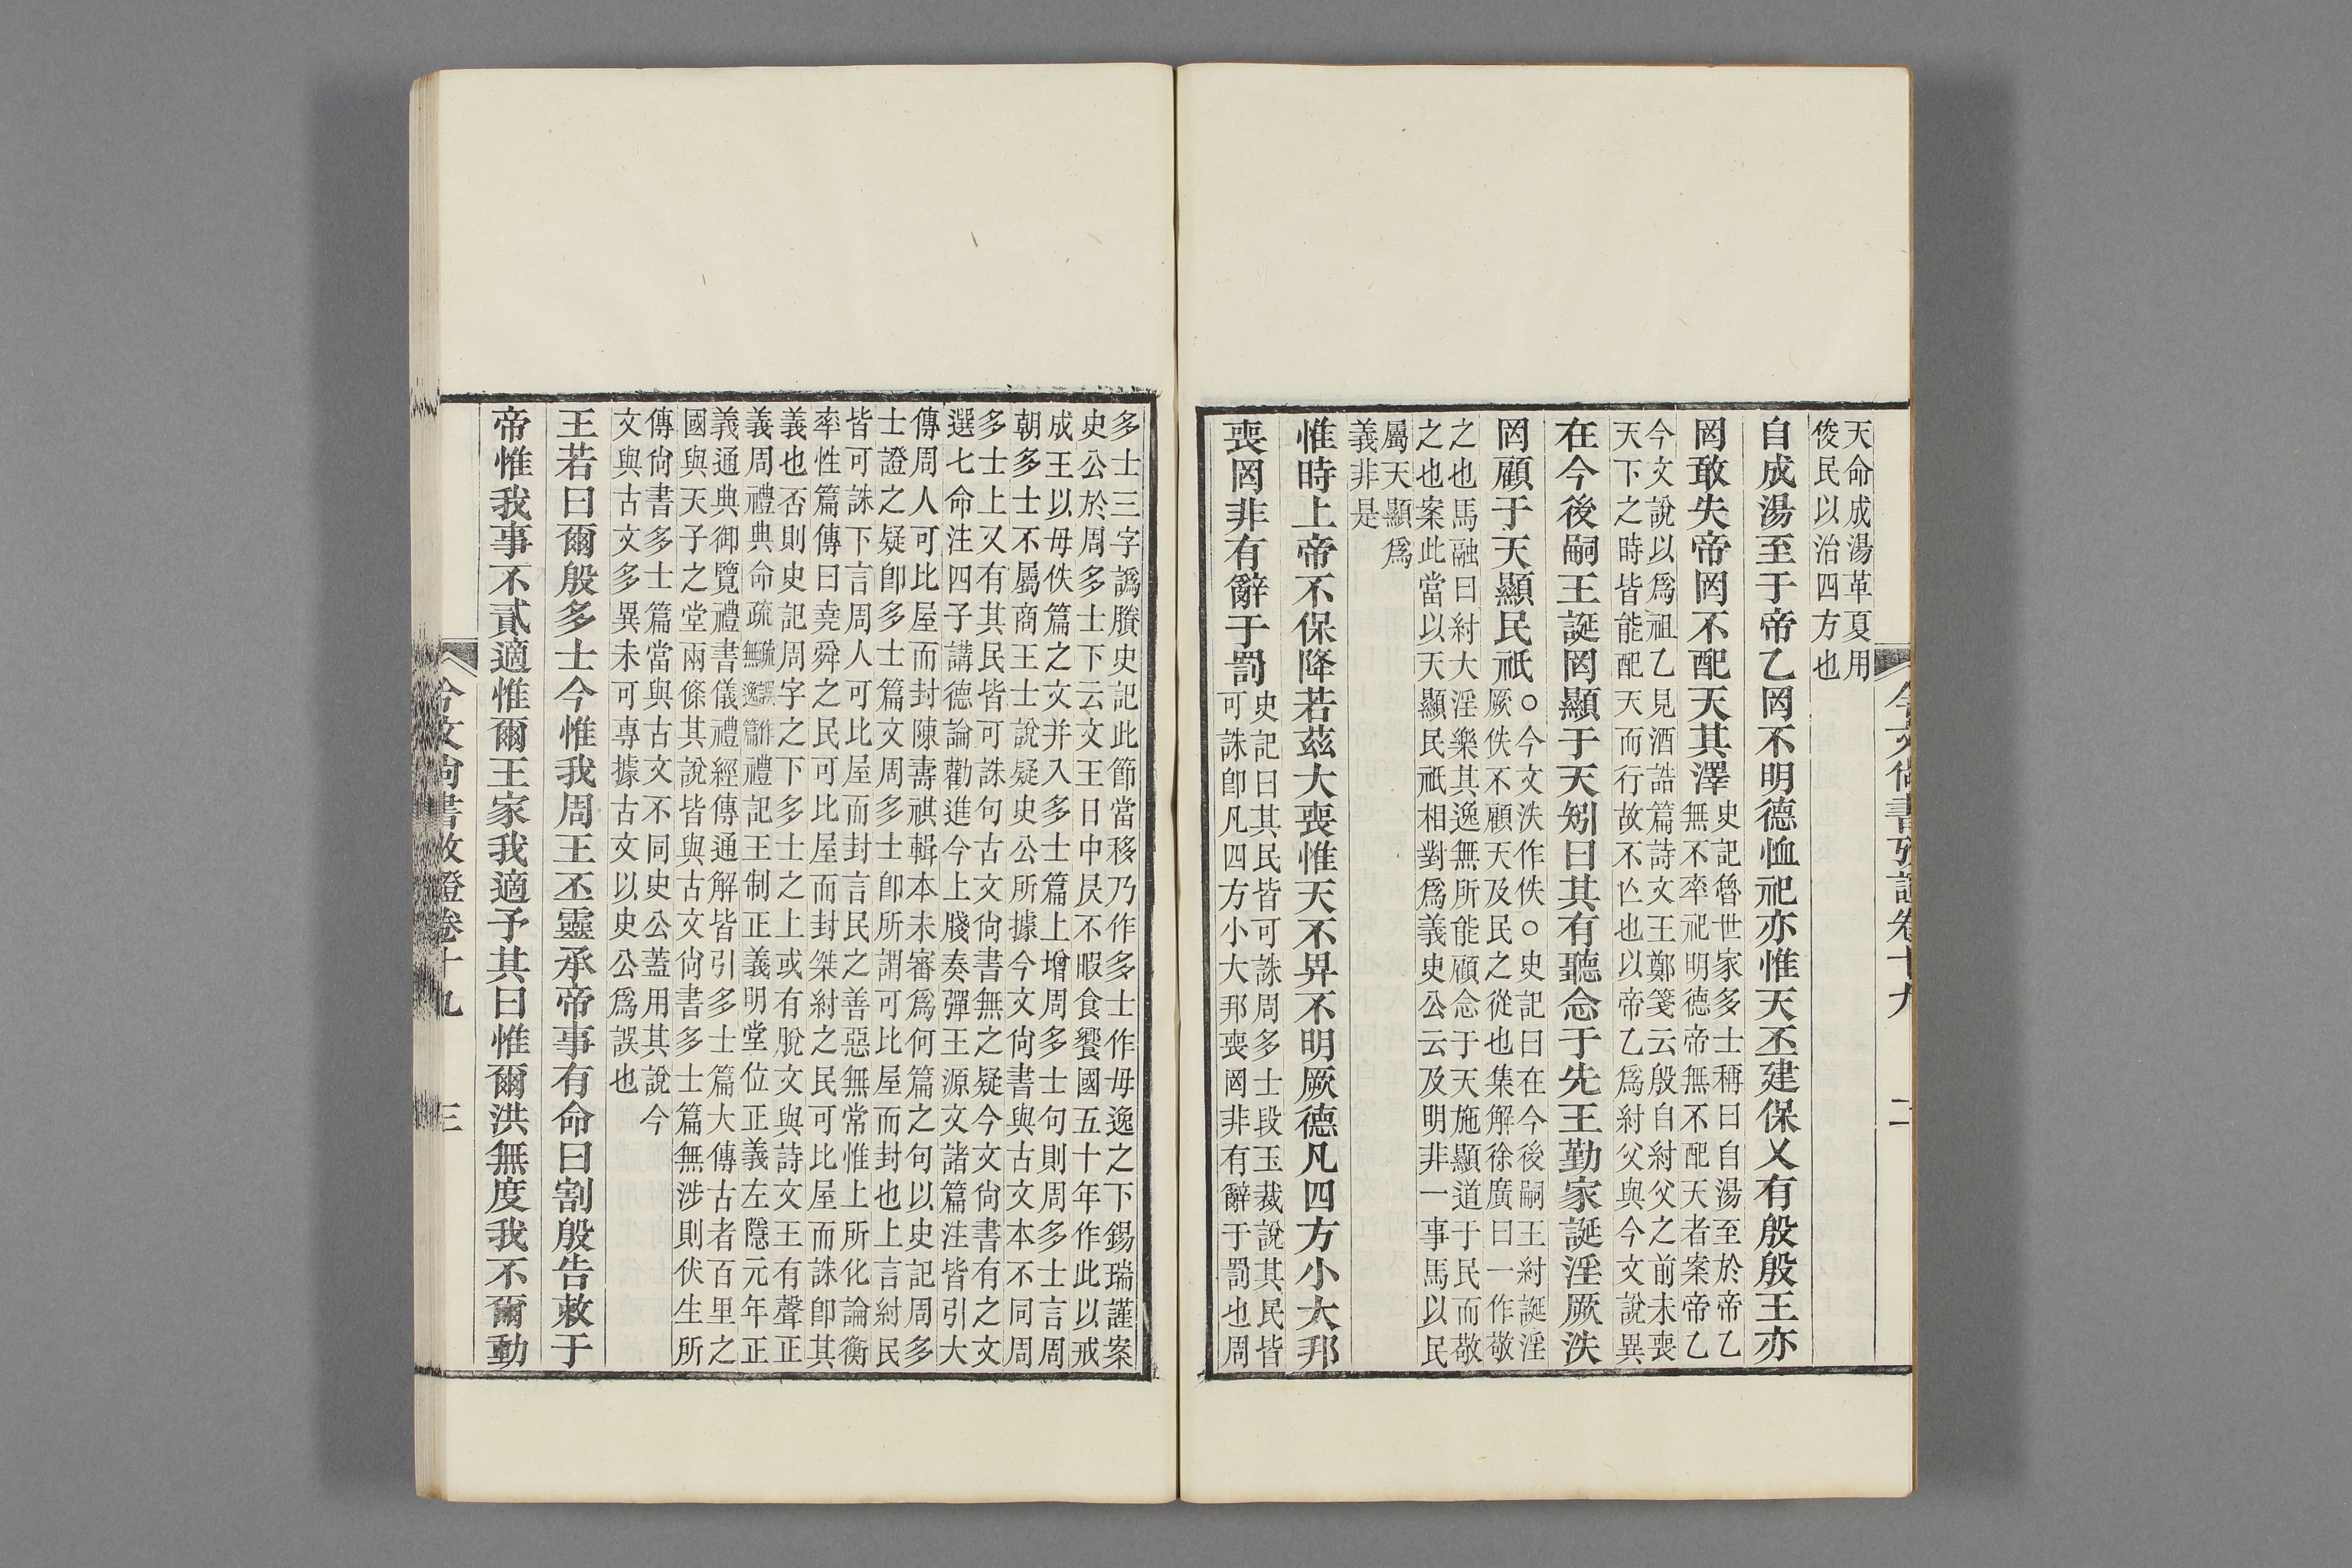 今文尚書攷證卷十九 二
天命成湯革夏用
俊民以治四方也
自成湯至于帝乙罔不明德恤祀亦惟天丕建保乂有殷殷王亦
罔敢失帝罔不配天其澤
史記魯世家多士稱曰自湯至於帝乙
無不率祀明德帝無不配天者案帝乙
今文說以爲祖乙見酒誥篇詩文王鄭箋云殷自紂父之前未喪
天下之時皆能配天而行故不亾也以帝乙爲紂父與今文說異
在今後嗣王誕罔顯于天矧曰其有聽念于先王勤家誕淫厥泆
罔顧于天顯民祇
○今文泆作佚○史記曰在今後嗣王紂誕淫
厥佚不顧天及民之從也集解徐廣曰一作敬
之也馬融曰紂大淫樂其逸無所能顧念于天施顯道于民而敬
之也案此當以天顯民祇相對爲義史公云及明非一事馬以民
屬天顯爲
義非是
惟時上帝不保降若茲大喪惟天不畀不明厥德凡四方小大邦
喪罔非有辭于罰
史記曰其民皆可誅周多士段玉裁說其民皆
可誅卽凡四方小大邦喪罔非有辭于罰也周
多士三字譌賸史記此節當移乃作多士作毋逸之下錫瑞謹案
史公於周多士下云文王日中昃不暇食饗國五十年作此以戒
成王以毋佚篇之文并入多士篇上增周多士句則周多士言周
朝多士不屬商王士說疑史公所據今文尙書與古文本不同周
多士上又有其民皆可誅句古文尙書無之疑今文尙書有之文
選七命注四子講德論勸進今上牋奏彈王源文諸篇注皆引大
傳周人可比屋而封陳壽祺輯本未審爲何篇之句以史記周多
士證之疑卽多士篇文周多士卽所謂可比屋而封也上言紂民
皆可誅下言周人可比屋而封言民之善惡無常惟上所化論衡
率性篇傳曰堯舜之民可比屋而封桀紂之民可比屋而誅卽其
義也否則史記周字之下多士之上或有脫文與詩文王有聲正
義周禮典命疏疏誤作無逸篇禮記王制正義明堂位正義左隱元年正
義通典御覽禮書儀禮經傳通解皆引多士篇大傳古者百里之
國與天子之堂兩條其說皆與古文尙書多士篇無涉則伏生所
傳尙書多士篇當與古文不同史公蓋用其說今
文與古文多異未可專據古文以史公爲誤也
王若曰爾殷多士今惟我周王丕靈承帝事有命曰割殷告敕于
帝惟我事不貳適惟爾王家我適予其曰惟爾洪無度我不爾動
今文尙書攷證卷十九 三